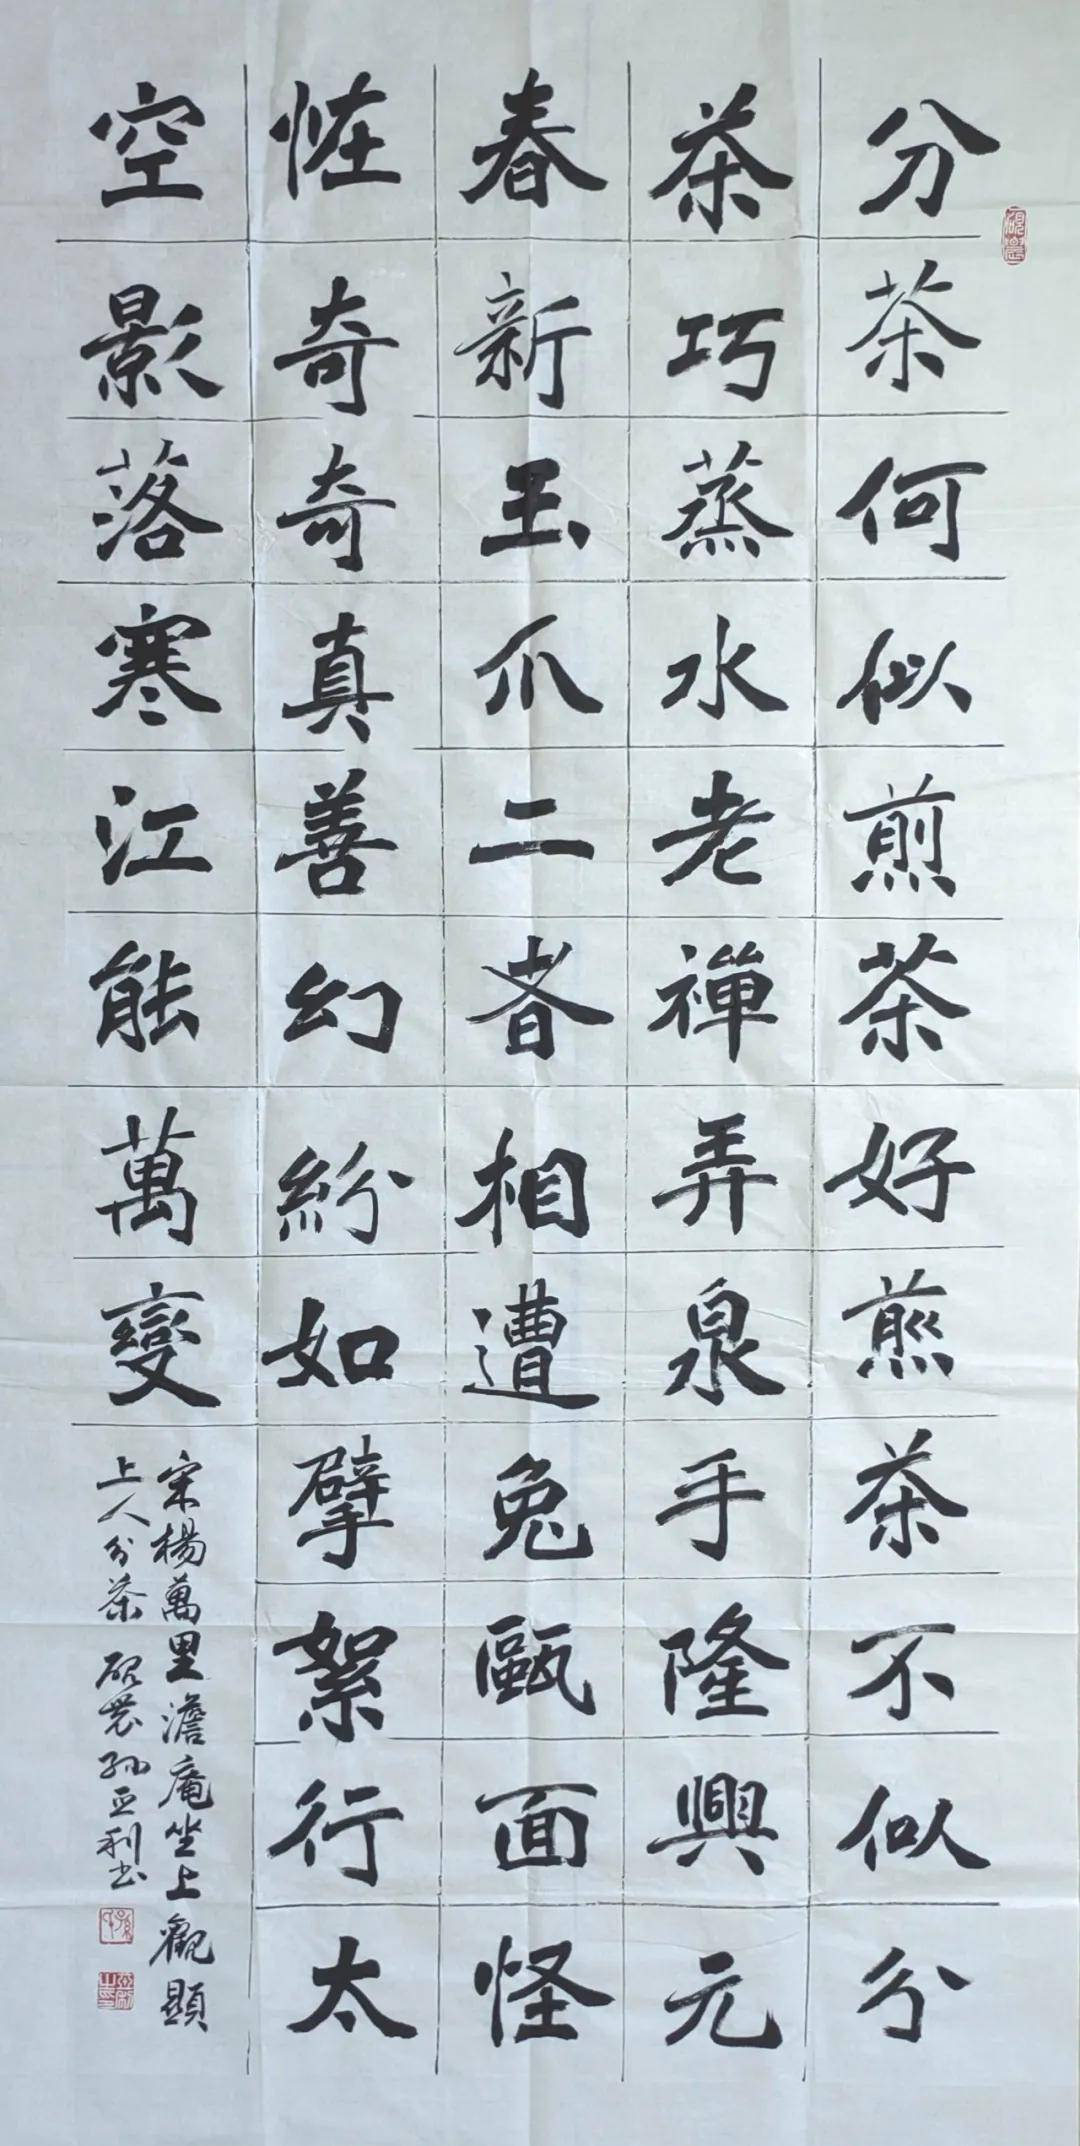 分茶何似煎茶好煎茶不似分
茶巧蒸水老禪弄泉手隆興元
春新玉爪二者相遭兔甌面怪
恠奇奇真善幻紛如擘絮行太
空影落寒江能萬變
宋楊萬里澹庵坐上觀顯
上人分茶 硯農孫亞利書